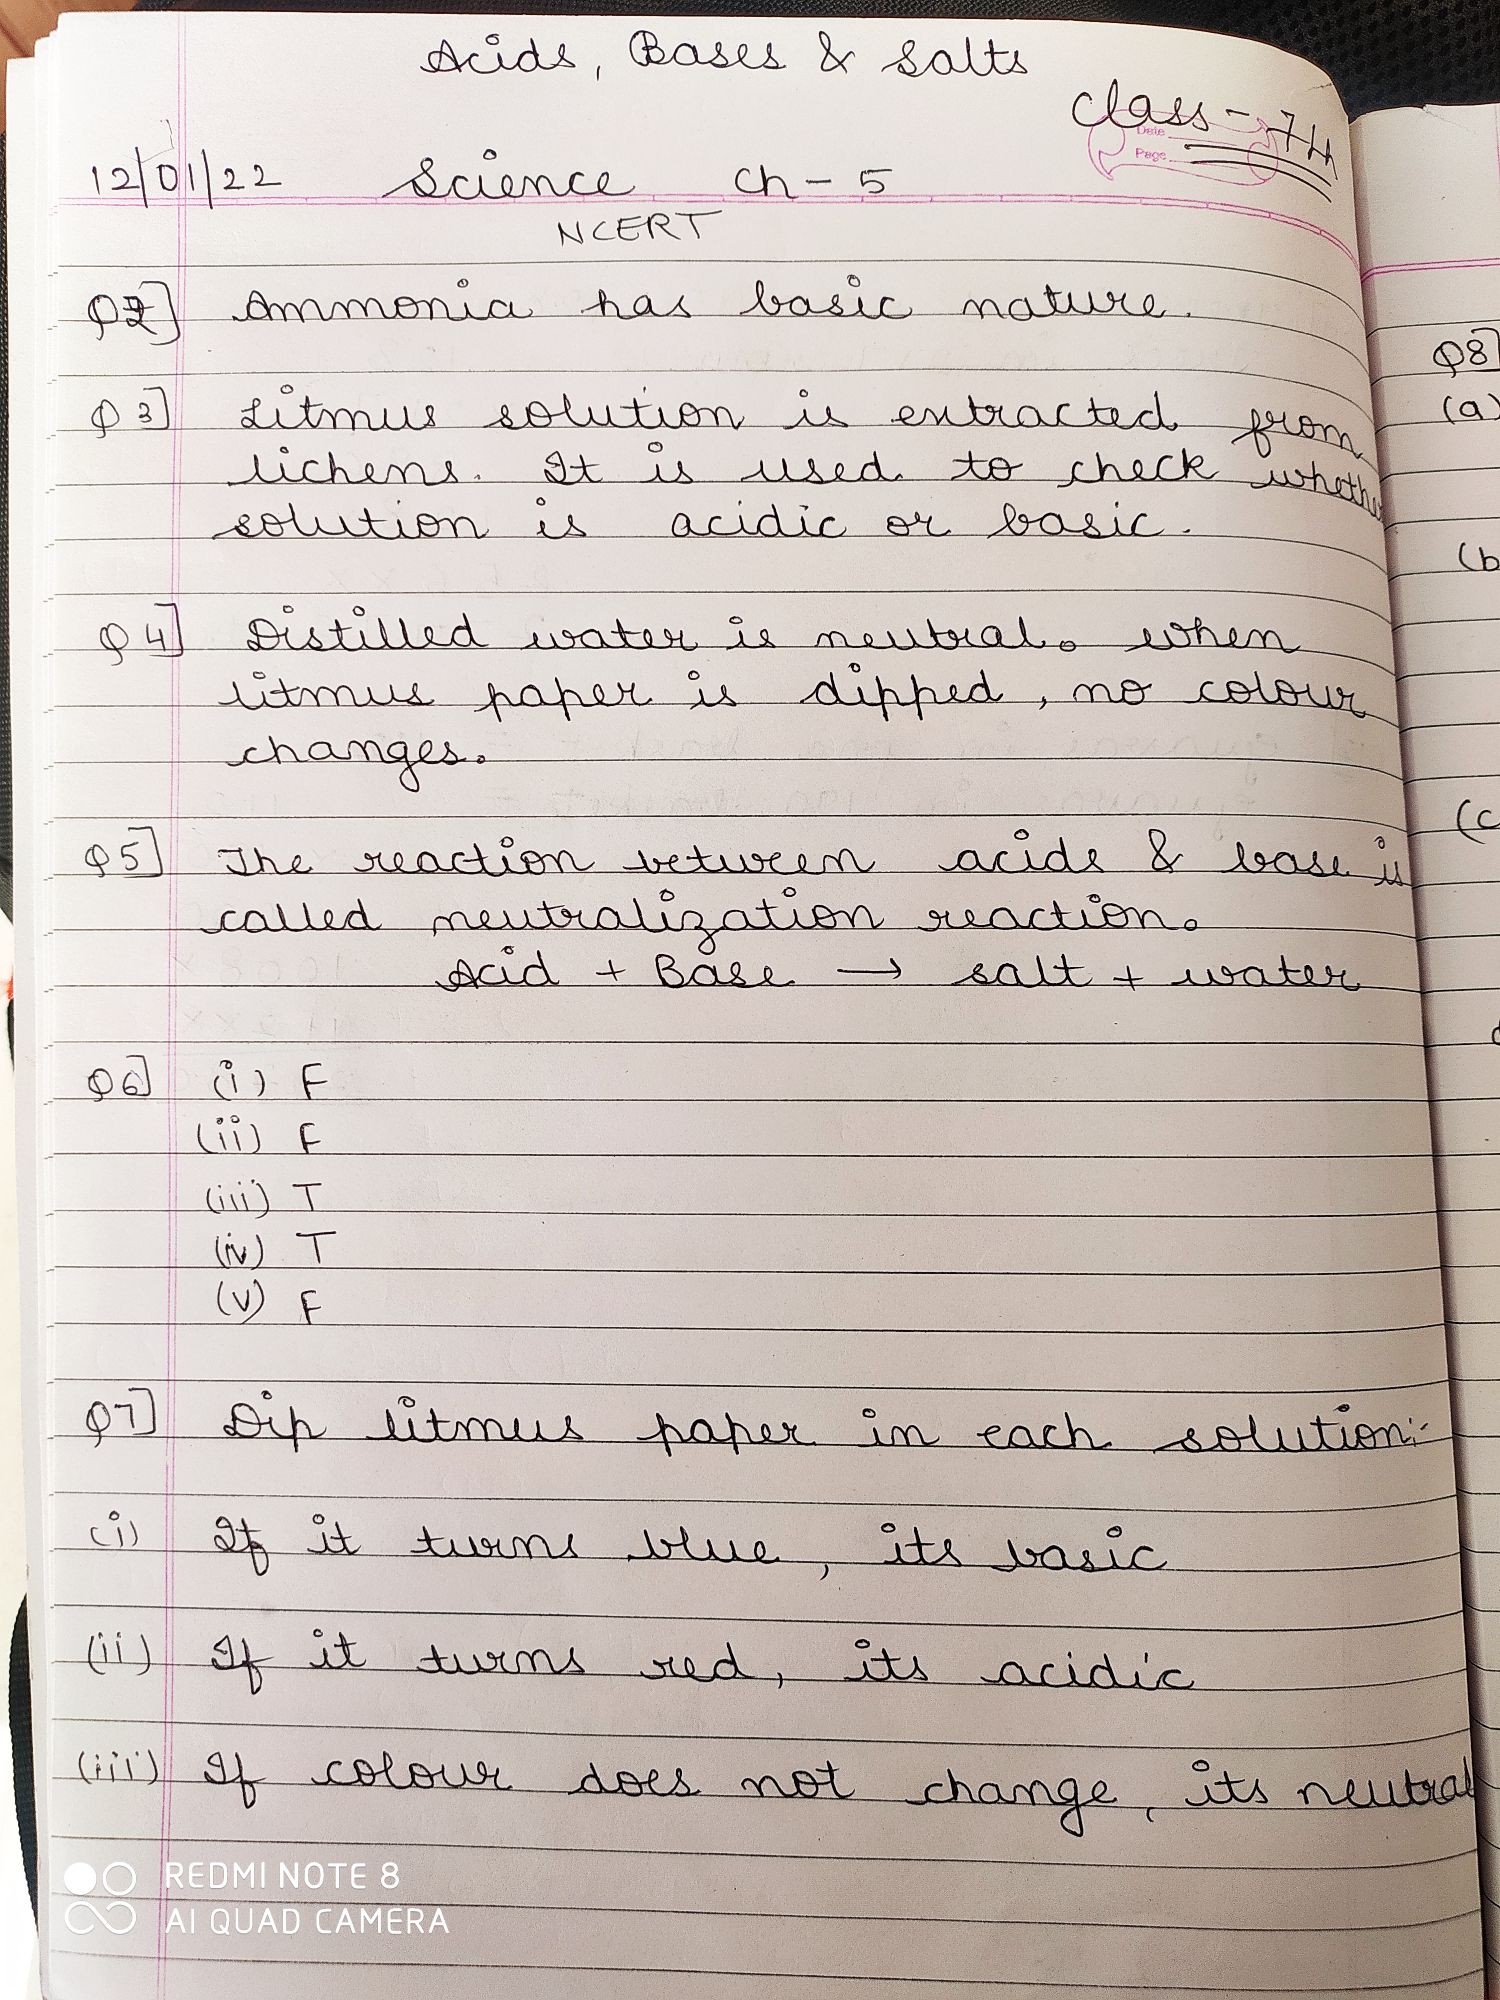 Acids, Bases & Salts
Class - 7th
Date
Page
12/01/22 Science Ch - 5
NCERT
Q2] Ammonia has basic nature.
Q3] Litmus solution is extracted from
lichens. It is used to check whether
solution is acidic or basic.
Q4] Distilled water is neutral. when
litmus paper is dipped, no colour
changes.
Q5] The reaction between acids & base is
called neutralization reaction.
Acid + Base → salt + water
Q6] (i) F
(ii) F
(iii) T
(iv) T
(v) F
Q7] Dip litmus paper in each solution:-
(i) If it turns blue, its basic
(ii) If it turns red, its acidic
(iii) If colour does not change, its neutral
Q8]
(a)
(b
(c
REDMI NOTE 8
AI QUAD CAMERA